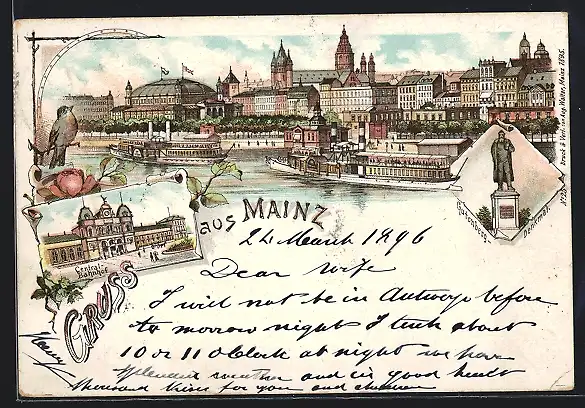 Druck & Verl. von Aug. Walter, Mainz 1895.
Gutenberg-
Denkmal.
Central-
Bahnhof
GRUSS aus MAINZ
24 March 1896
Dear wife
I will not be in Antwerp before
to morrow night I think about
10 or 11 oClock at night we have
splendid weather and in good health
thousand kisses for you and children
Henry